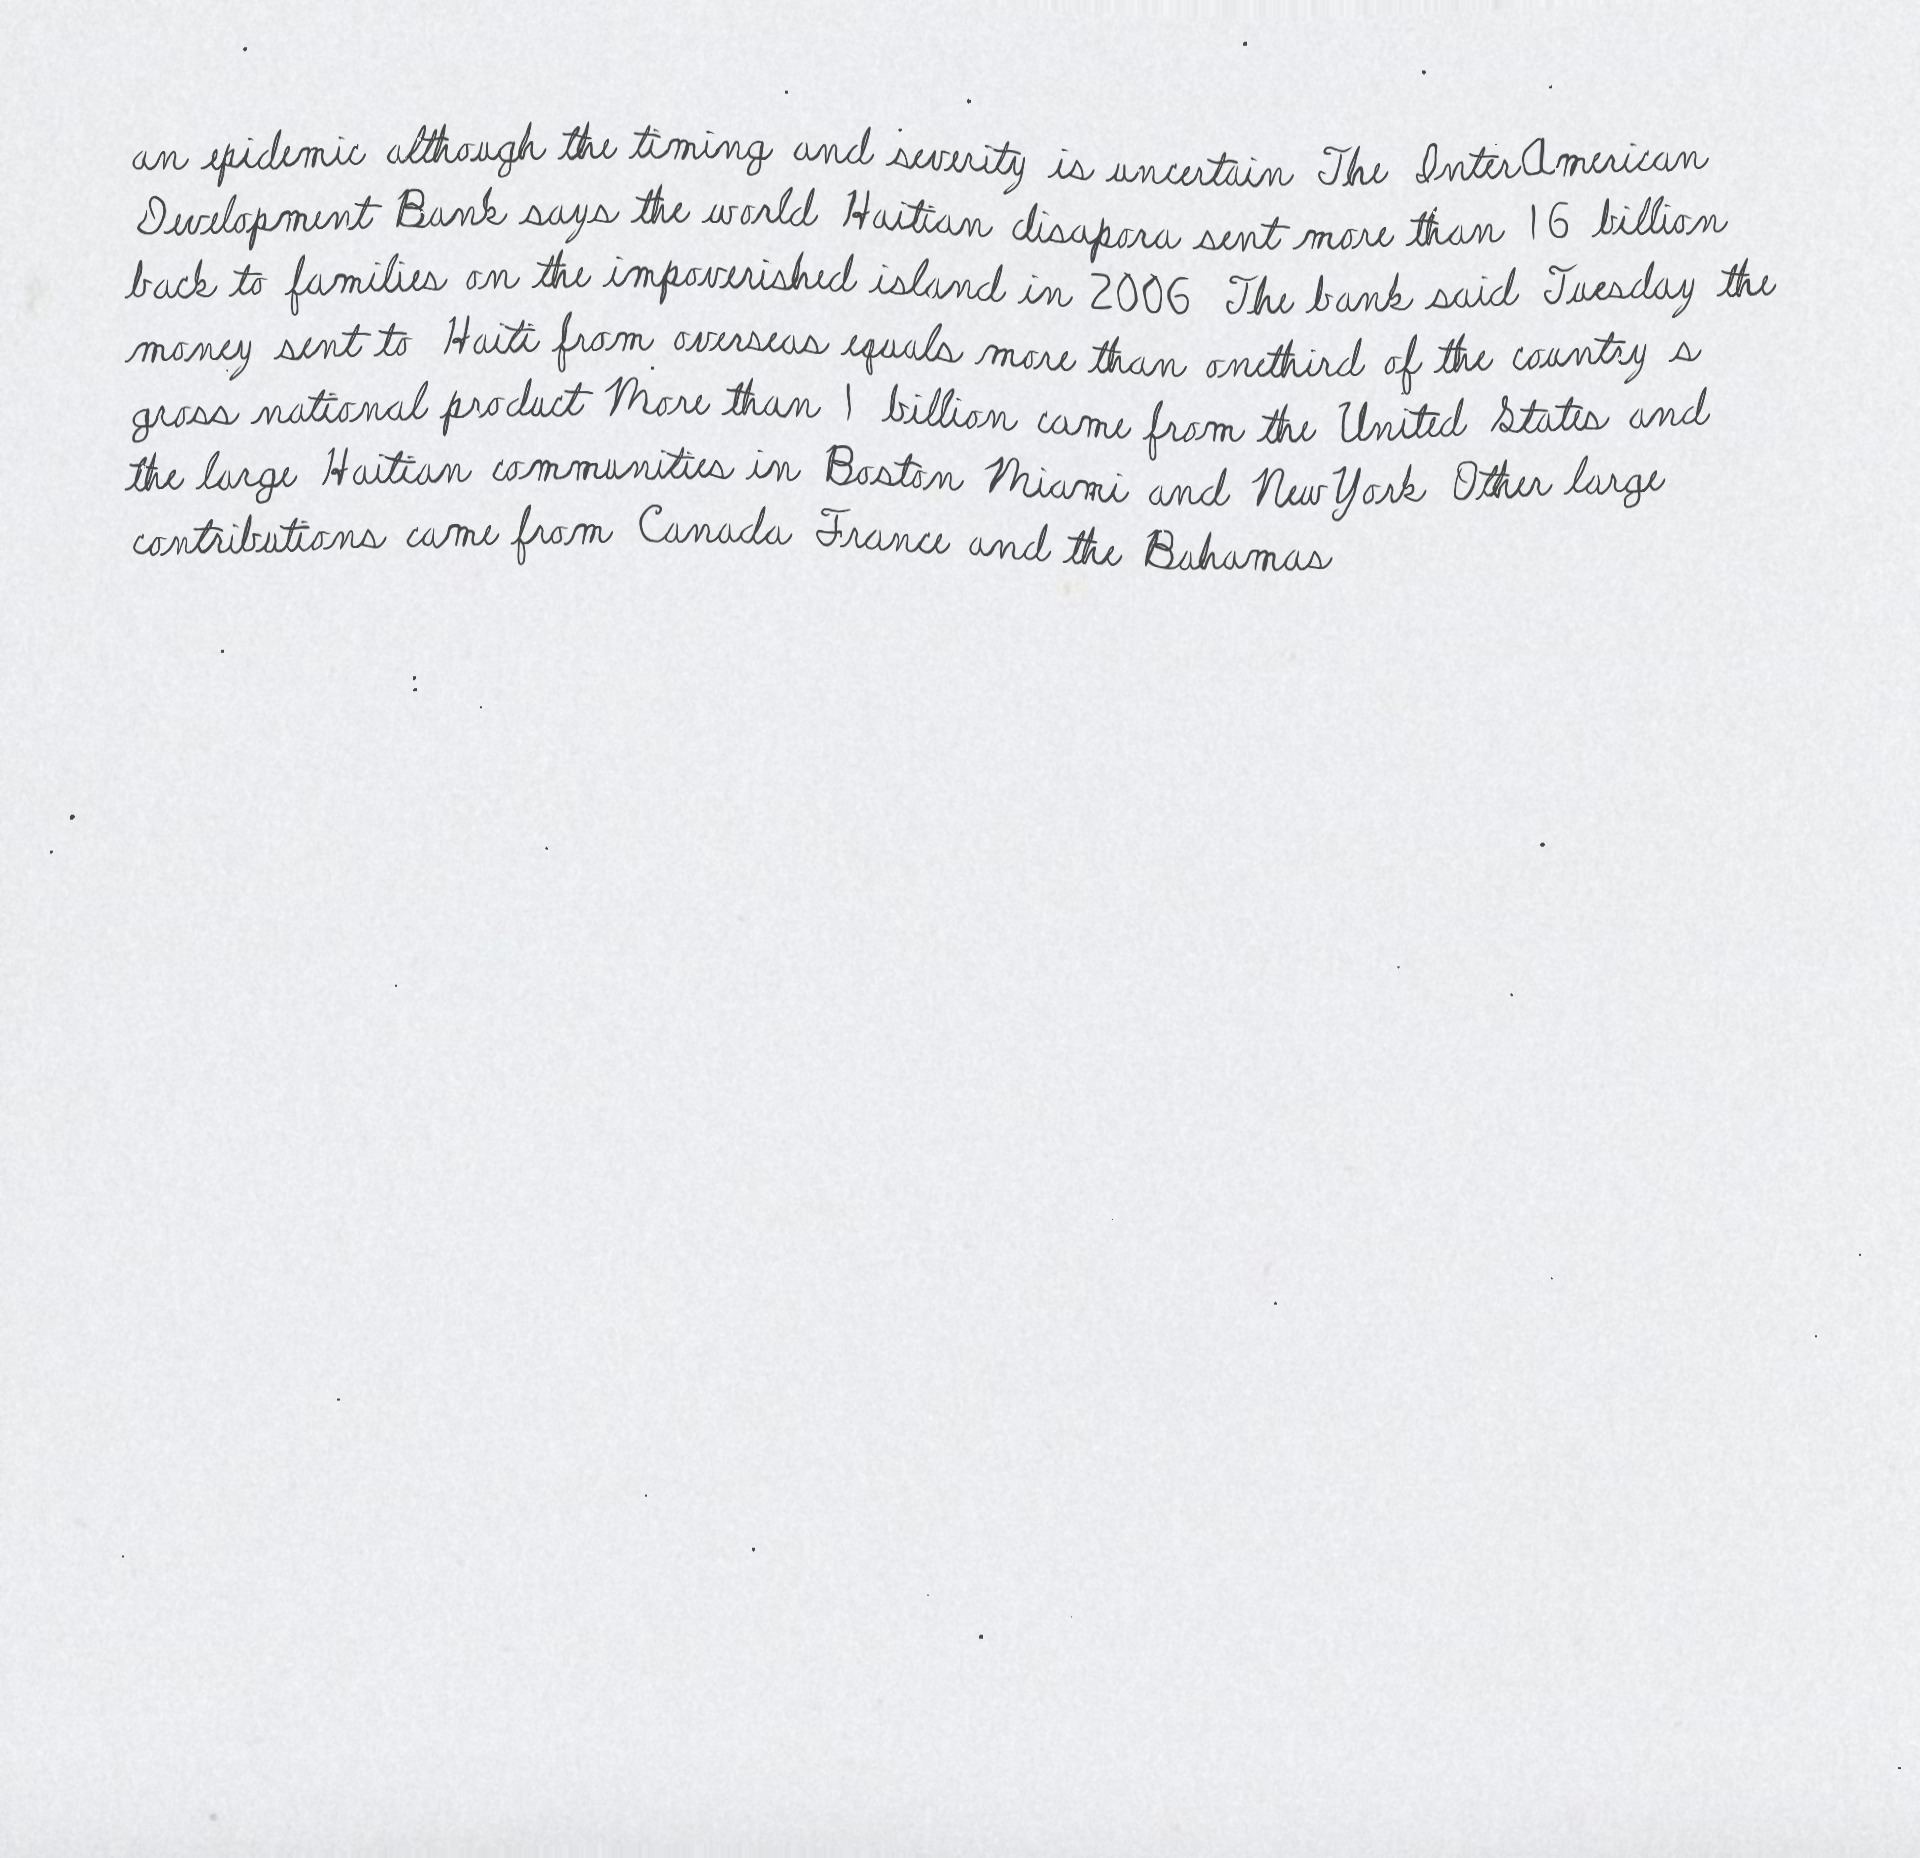 an epidemic although the timing and severity is uncertain The InterAmerican
Development Bank says the world Haitian disapora sent more than 16 billion
back to families on the impoverished island in 2006 The bank said Tuesday the
money sent to Haiti from overseas equals more than onethird of the country s
gross national product More than 1 billion came from the United States and
the large Haitian communities in Boston Miami and New York Other large
contributions came from Canada France and the Bahamas